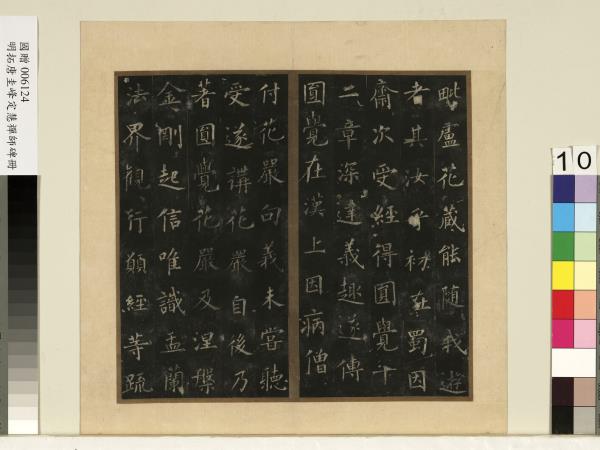 毗盧花藏能隨我遊
者其汝乎初在蜀因
齋次受經得圓覺十
二章深達義趣遂傳
圓覺在漢上因病僧
付花嚴句義未嘗聽
受遂講花嚴自後乃
著圓覺花嚴及涅槃
金剛起信唯識盂蘭
法界觀行願經等疏
國贈 006124
明拓唐圭峰定慧禪師碑冊
10